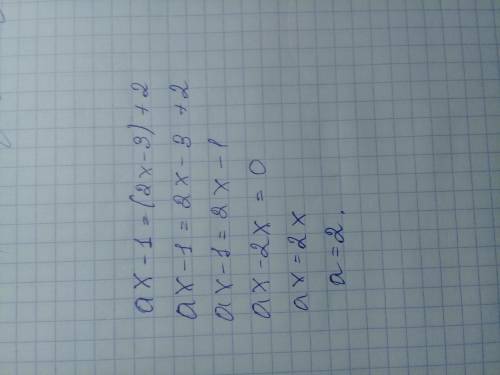 ax - 1 = (2x - 3) + 2
ax - 1 = 2x - 3 + 2
ax - 1 = 2x - 1
ax - 2x = 0
ax = 2x
a = 2.